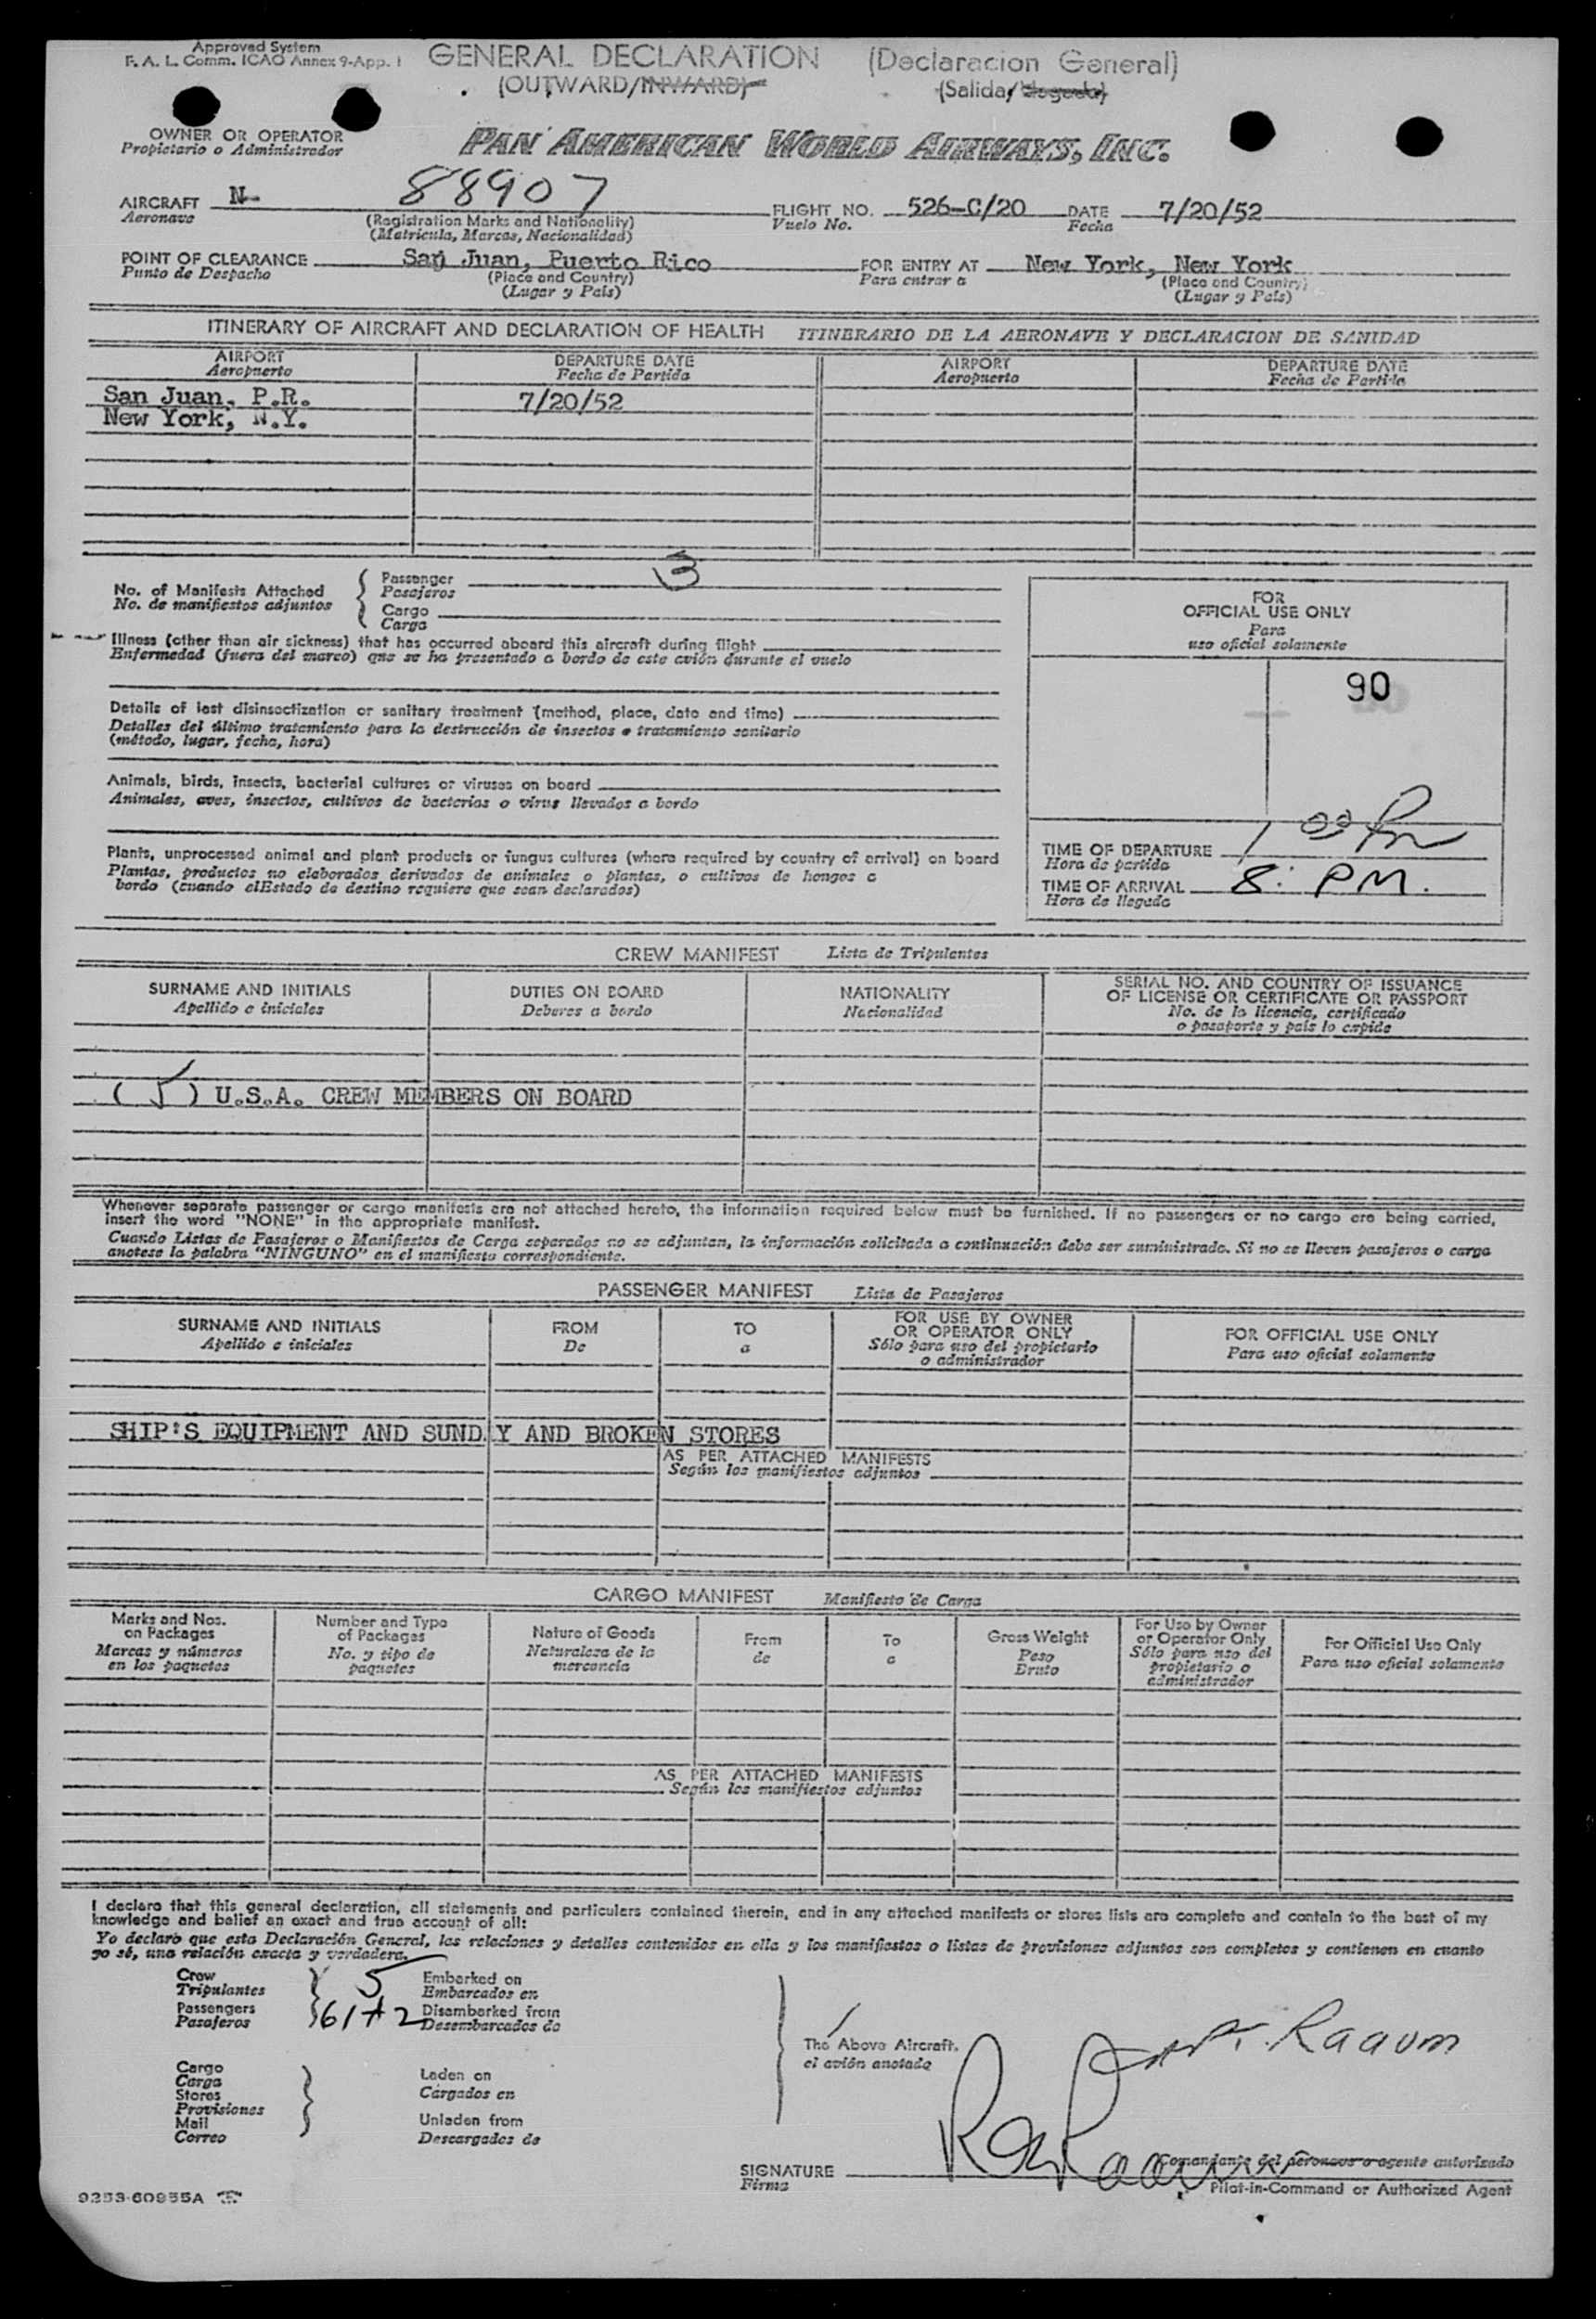 Approved System
F. A. L. Comm. ICAO Annex 9-App. 1
GENERAL DECLARATION (Declaracion General)
(OUTWARD/INWARD) (Salida/Llegada)
OWNER OR OPERATOR
Propietario o Administrador
PAN AMERICAN WORLD AIRWAYS, INC.
AIRCRAFT N- 88907 FLIGHT NO. 526-C/20 DATE 7/20/52
Aeronave (Registration Marks and Nationality) Vuelo No. Fecha
(Matricula, Marcas, Nacionalidad)
POINT OF CLEARANCE San Juan, Puerto Rico FOR ENTRY AT New York, New York
Punto de Despacho (Place and Country) Para entrar a (Place and Country)
(Lugar y País) (Lugar y País)
ITINERARY OF AIRCRAFT AND DECLARATION OF HEALTH ITINERARIO DE LA AERONAVE Y DECLARACION DE SANIDAD
AIRPORT DEPARTURE DATE AIRPORT DEPARTURE DATE
Aeropuerto Fecha de Partida Aeropuerto Fecha de Partida
San Juan, P.R. 7/20/52
New York, N.Y.
No. of Manifests Attached
No. de manifiestos adjuntos
Passenger 3
Pasajeros
Cargo
Carga
Illness (other than air sickness) that has occurred aboard this aircraft during flight
Enfermedad (fuera del mareo) que se ha presentado a bordo de este avión durante el vuelo
Details of last disinsectization or sanitary treatment (method, place, date and time)
Detalles del último tratamiento para la destrucción de insectos o tratamiento sanitario
(método, lugar, fecha, hora)
Animals, birds, insects, bacterial cultures or viruses on board
Animales, aves, insectos, cultivos de bacterias o virus llevados a bordo
Plants, unprocessed animal and plant products or fungus cultures (where required by country of arrival) on board
Plantas, productos no elaborados derivados de animales o plantas, o cultivos de hongos a
bordo (cuando elEstado de destino requiere que sean declarados)
FOR
OFFICIAL USE ONLY
Para
uso oficial solamente
90
TIME OF DEPARTURE 1 00 Pm
Hora de partida
TIME OF ARRIVAL 8: PM.
Hora de llegada
CREW MANIFEST Lista de Tripulantes
SURNAME AND INITIALS DUTIES ON BOARD NATIONALITY SERIAL NO. AND COUNTRY OF ISSUANCE
OF LICENSE OR CERTIFICATE OR PASSPORT
Apellido e iniciales Deberes a bordo Nacionalidad No. de la licencia, certificado
o pasaporte y país lo expide
( 5 ) U.S.A. CREW MEMBERS ON BOARD
Whenever separate passenger or cargo manifests are not attached hereto, the information required below must be furnished. If no passengers or no cargo are being carried,
insert the word "NONE" in the appropriate manifest.
Cuando Listas de Pasajeros o Manifiestos de Carga separados no se adjuntan, la información solicitada a continuación debe ser suministrada. Si no se lleven pasajeros o carga
anotese la palabra "NINGUNO" en el manifiesto correspondiente.
PASSENGER MANIFEST Lista de Pasajeros
SURNAME AND INITIALS FROM TO FOR USE BY OWNER
OR OPERATOR ONLY FOR OFFICIAL USE ONLY
Apellido e iniciales De a Sólo para uso del propietario
o administrador Para uso oficial solamente
SHIP'S EQUIPMENT AND SUNDAY AND BROKEN STORES
AS PER ATTACHED MANIFESTS
Según los manifiestos adjuntos
CARGO MANIFEST Manifiesto de Carga
Marks and Nos.
on Packages
Marcas y números
en los paquetes
Number and Type
of Packages
No. y tipo de
paquetes
Nature of Goods
Naturaleza de la
mercancía
From
de
To
a
Gross Weight
Peso
Bruto
For Use by Owner
or Operator Only
Sólo para uso del
propietario o
administrador
For Official Use Only
Para uso oficial solamente
AS PER ATTACHED MANIFESTS
Según los manifiestos adjuntos
I declare that this general declaration, all statements and particulars contained therein, and in any attached manifests or stores lists are complete and contain to the best of my
knowledge and belief an exact and true account of all:
Yo declaro que esta Declaración General, las relaciones y detalles contenidos en ella y los manifiestos o listas de provisiones adjuntos son completos y contienen en cuanto
yo sé, una relación exacta y verdadera.
Crew 5 Embarked on
Tripulantes Embarcados en
Passengers 61+2 Disembarked from
Pasajeros Desembarcados de
The Above Aircraft.
el avión anotado
Capt. Raaum
Cargo
Carga
Stores
Provisiones
Mail
Correo
Laden on
Cargados en
Unladen from
Descargados de
SIGNATURE
Firma
Comandante del aeronave o agente autorizado
Pilot-in-Command or Authorized Agent
9253-60955A